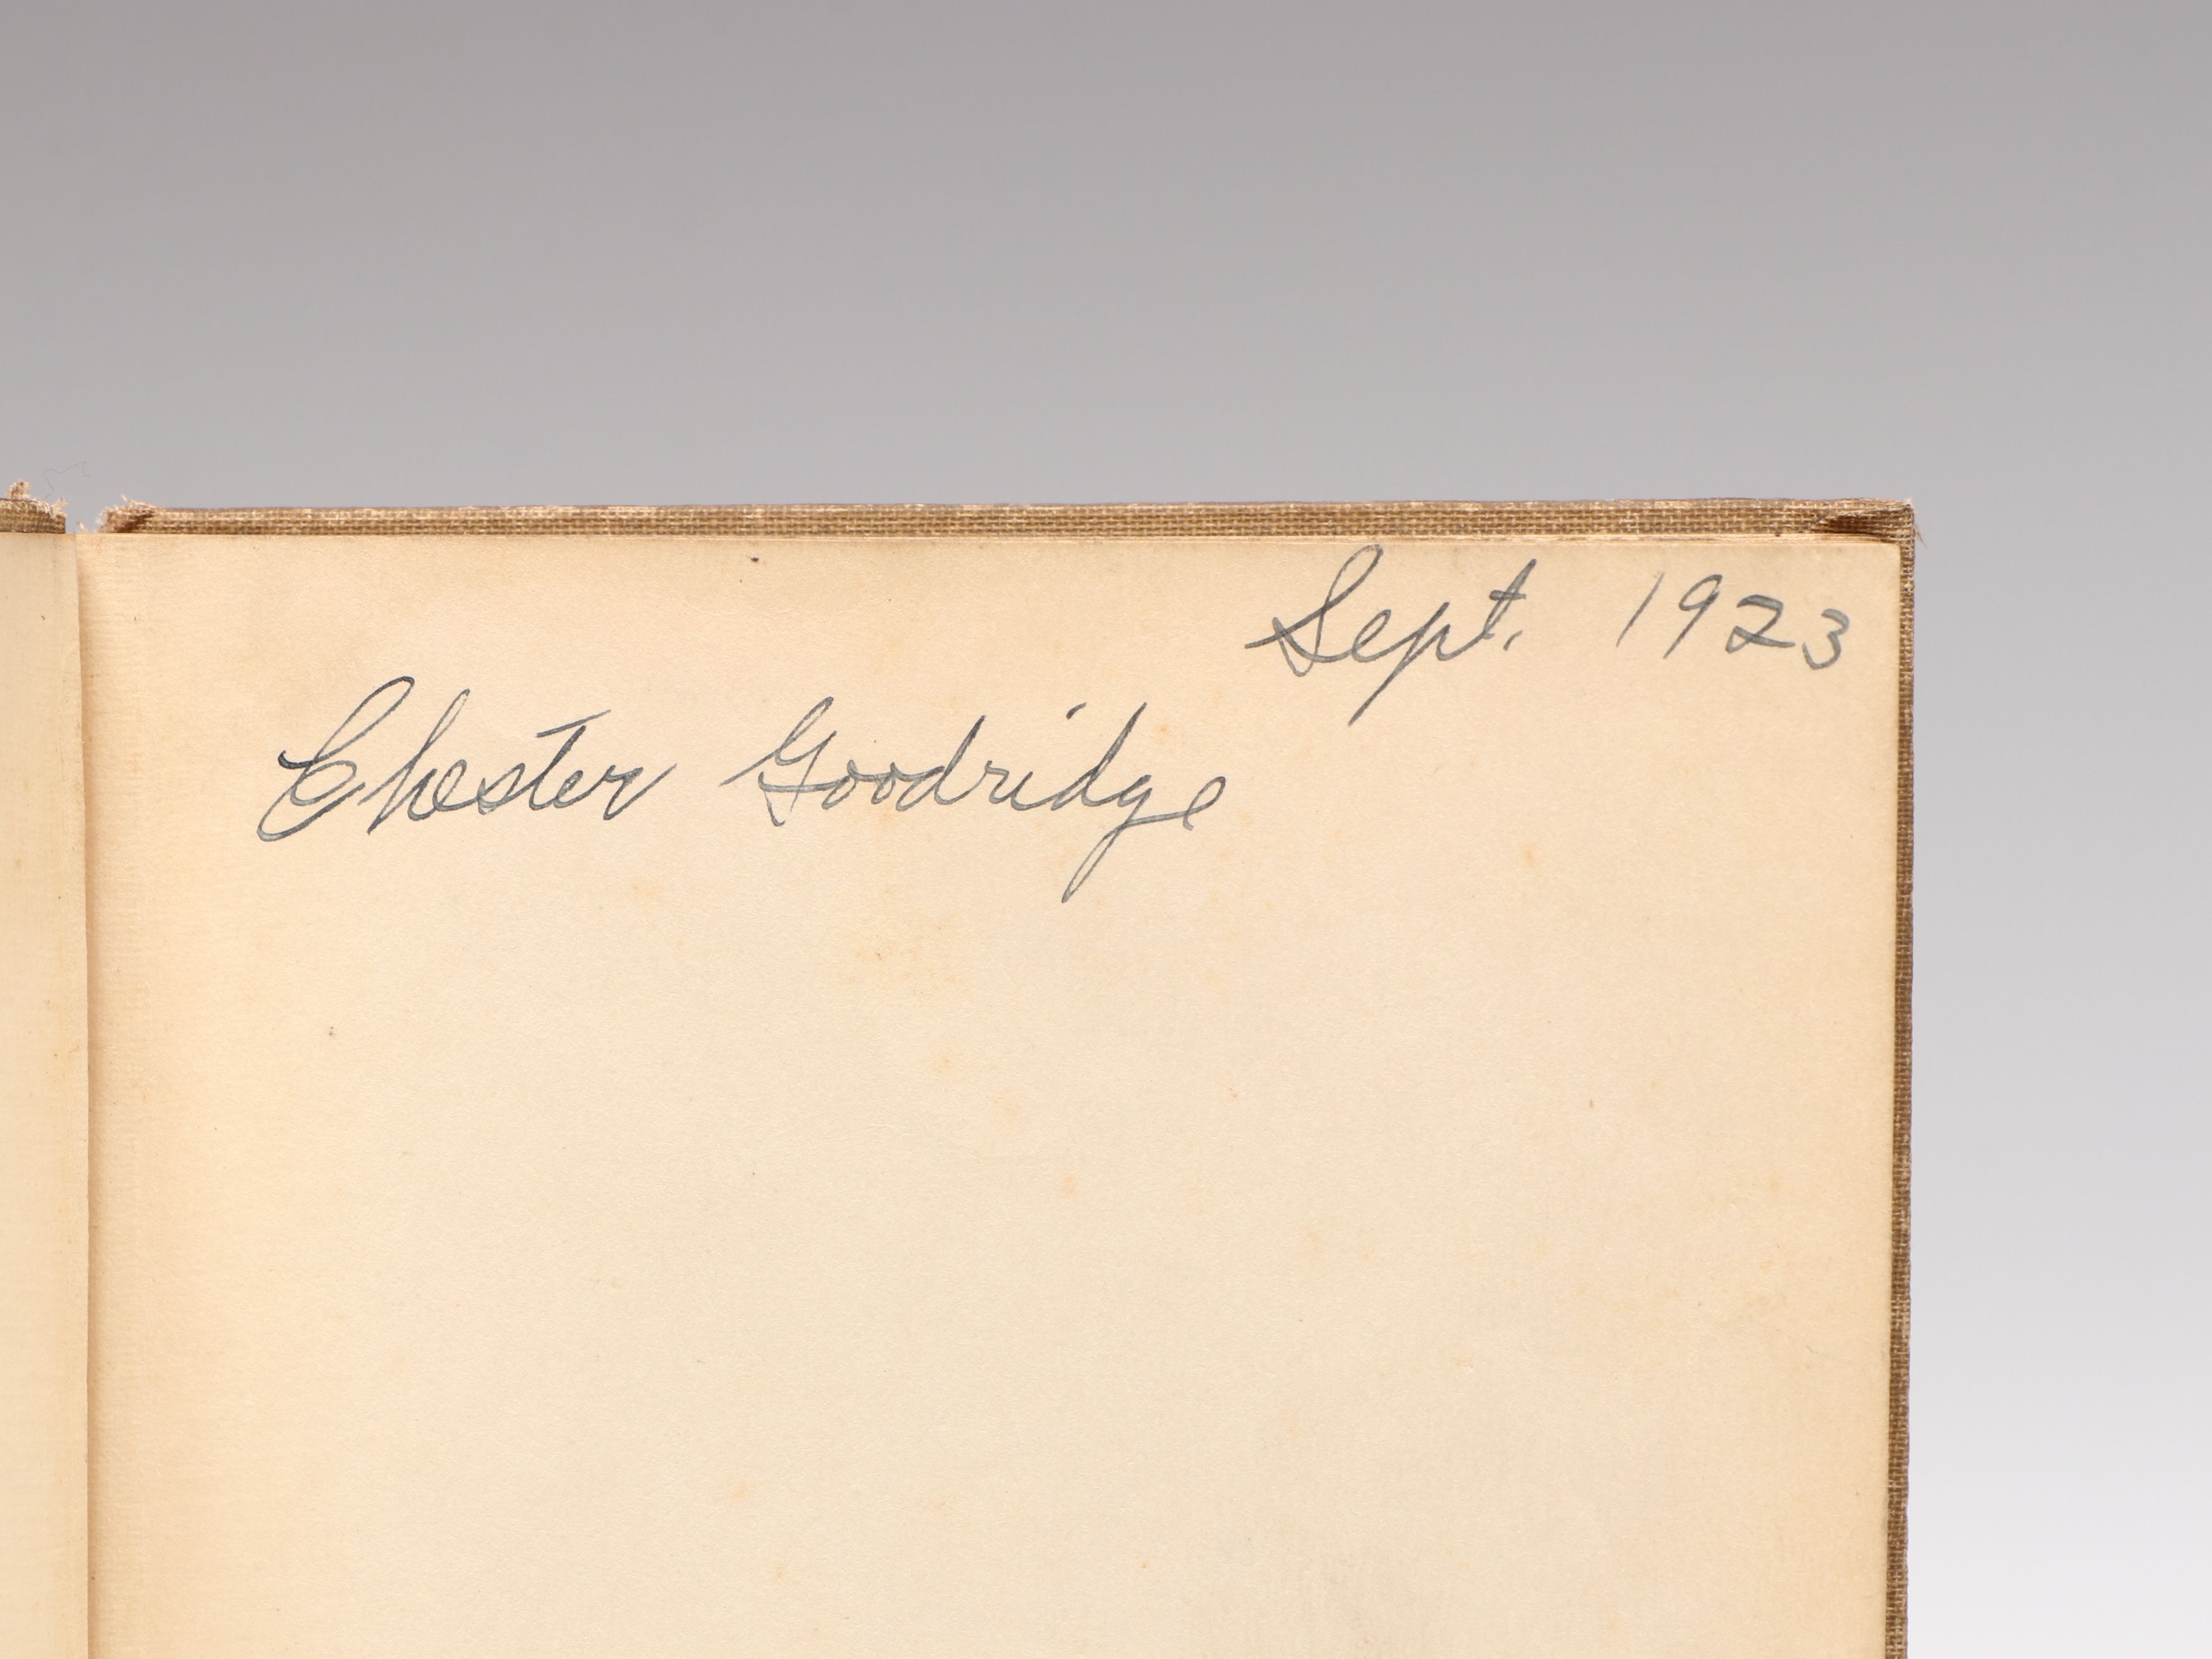 Sept. 1923
Chester Goodridge